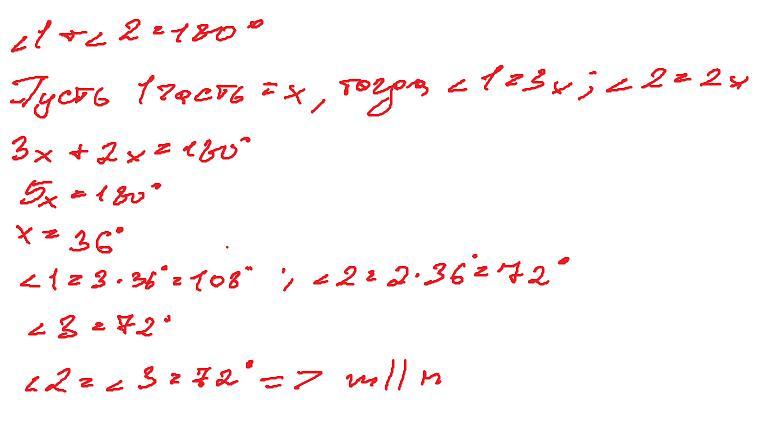 ∠1 + ∠2 = 180°
Пусть 1 часть = x, тогда ∠1 = 3x; ∠2 = 2x
3x + 2x = 180°
5x = 180°
x = 36°
∠1 = 3 · 36° = 108° ; ∠2 = 2 · 36° = 72°
∠3 = 72°
∠2 = ∠3 = 72° => m || n